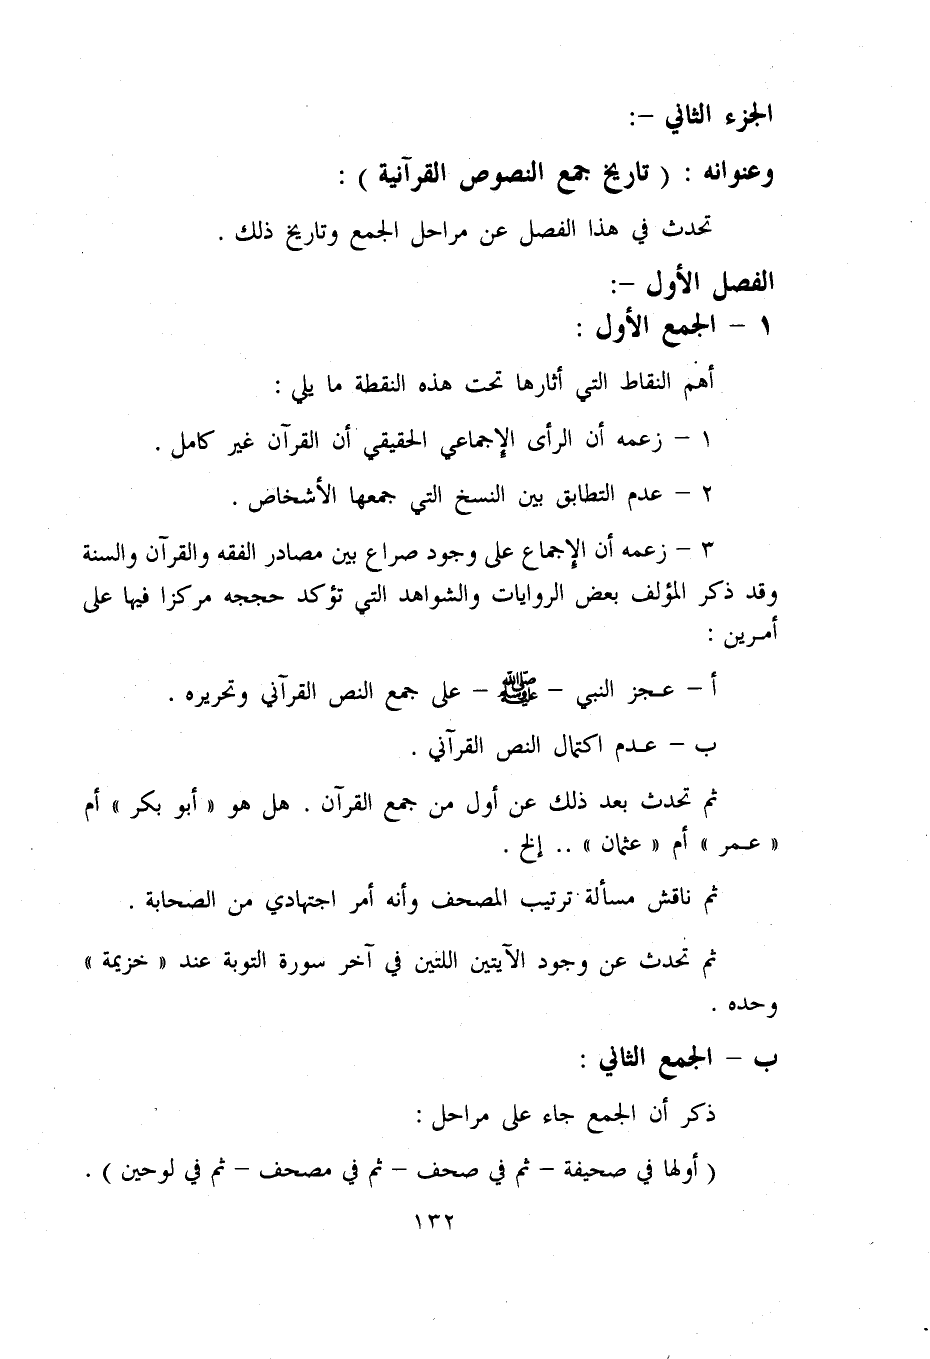 الجزء الثاني –:
وعنوانه : ( تاريخ جمع النصوص القرآنية ) :
تحدث في هذا الفصل عن مراحل الجمع وتاريخ ذلك .
الفصل الأول –:
١ – الجمع الأول :
أهم النقاط التي أثارها تحت هذه النقطة ما يلي :
١ – زعمه أن الرأى الإجماعي الحقيقي أن القرآن غير كامل .
٢ – عدم التطابق بين النسخ التي جمعها الأشخاص .
٣ – زعمه أن الإجماع على وجود صراع بين مصادر الفقه والقرآن والسنة
وقد ذكر المؤلف بعض الروايات والشواهد التي تؤكد حججه مركزا فيها على
أمرين :
أ – عجز النبي – ﷺ – على جمع النص القرآني وتحريره .
ب – عدم اكتمال النص القرآني .
ثم تحدث بعد ذلك عن أول من جمع القرآن . هل هو « أبو بكر » أم
« عمر » أم « عثمان » .. إلخ .
ثم ناقش مسألة ترتيب المصحف وأنه أمر اجتهادي من الصحابة .
ثم تحدث عن وجود الآيتين اللتين في آخر سورة التوبة عند « خزيمة »
وحده .
ب – الجمع الثاني :
ذكر أن الجمع جاء على مراحل :
( أولها في صحيفة – ثم في صحف – ثم في مصحف – ثم في لوحين ) .
١٣٢